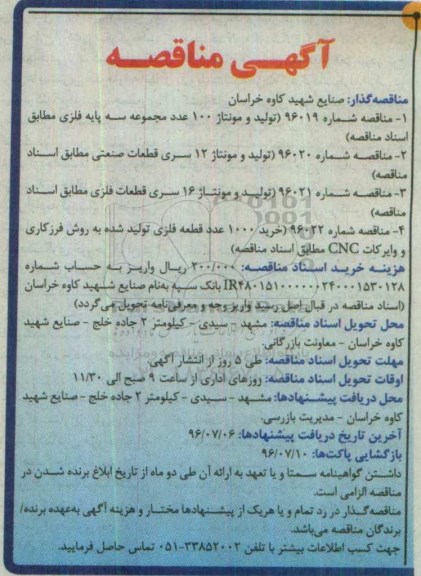 آگهـی مناقصـه
مناقصه‌گذار: صنایع شهید کاوه خراسان
۱- مناقصه شماره ۹۶۰۱۹ (تولید و مونتاژ ۱۰۰ عدد مجموعه سه پایه فلزی مطابق
اسناد مناقصه)
۲- مناقصـه شماره ۹۶۰۲۰ (تولید و مونتاژ ۱۲ سری قطعات صنعتی مطابق اسناد
مناقصه)
۳- مناقصه شماره ۹۶۰۲۱ (تولید و مونتاژ ۱۶ سری قطعات فلزی مطابق اسناد
مناقصه)
۴- مناقصه شماره ۹۶۰۲۲ (خرید ۱۰۰۰ عدد قطعه فلزی تولید شده به روش فرزکاری
و وایرکات CNC مطابق اسناد مناقصه)
هزینه خرید اسناد مناقصـه: ۲۰۰/۰۰۰ ریال واریز به حساب شماره
IR۴۸۰۱۵۱۰۰۰۰۰۰۲۴۰۰۰۱۵۳۰۱۲۸ بانک سپه به‌نام صنایع شهید کاوه خراسان
(اسناد مناقصه در قبال اصل رسید واریز وجه و معرفی‌نامه تحویل می‌گردد)
محل تحویل اسناد مناقصه: مشهد - سیدی - کیلومتر ۲ جاده خلج - صنایع شهید
کاوه خراسان - معاونت بازرگانی.
مهلت تحویل اسناد مناقصه: طی ۵ روز از انتشار آگهی.
اوقات تحویل اسناد مناقصه: روزهای اداری از ساعت ۹ صبح الی ۱۱/۳۰
محل دریافت پیشـنهادها: مشهد - سیدی - کیلومتر ۲ جاده خلج - صنایع شهید
کاوه خراسان - مدیریت بازرسی.
آخرین تاریخ دریافت پیشنهادها: ۹۶/۰۷/۰۶
بازگشایی پاکت‌ها: ۹۶/۰۷/۱۰
داشتن گواهینامه سمتا و یا تعهد به ارائه آن طی دو ماه از تاریخ ابلاغ برنده شدن در
مناقصه الزامی است.
مناقصه‌گـذار در رد تمام و یا هریک از پیشـنهادها مختـار و هزینه آگهی به‌عهده برنده/
برندگان مناقصه می‌باشد.
جهت کسب اطلاعات بیشتر با تلفن ۳۳۸۵۲۰۰۲-۰۵۱ تماس حاصل فرمایید.